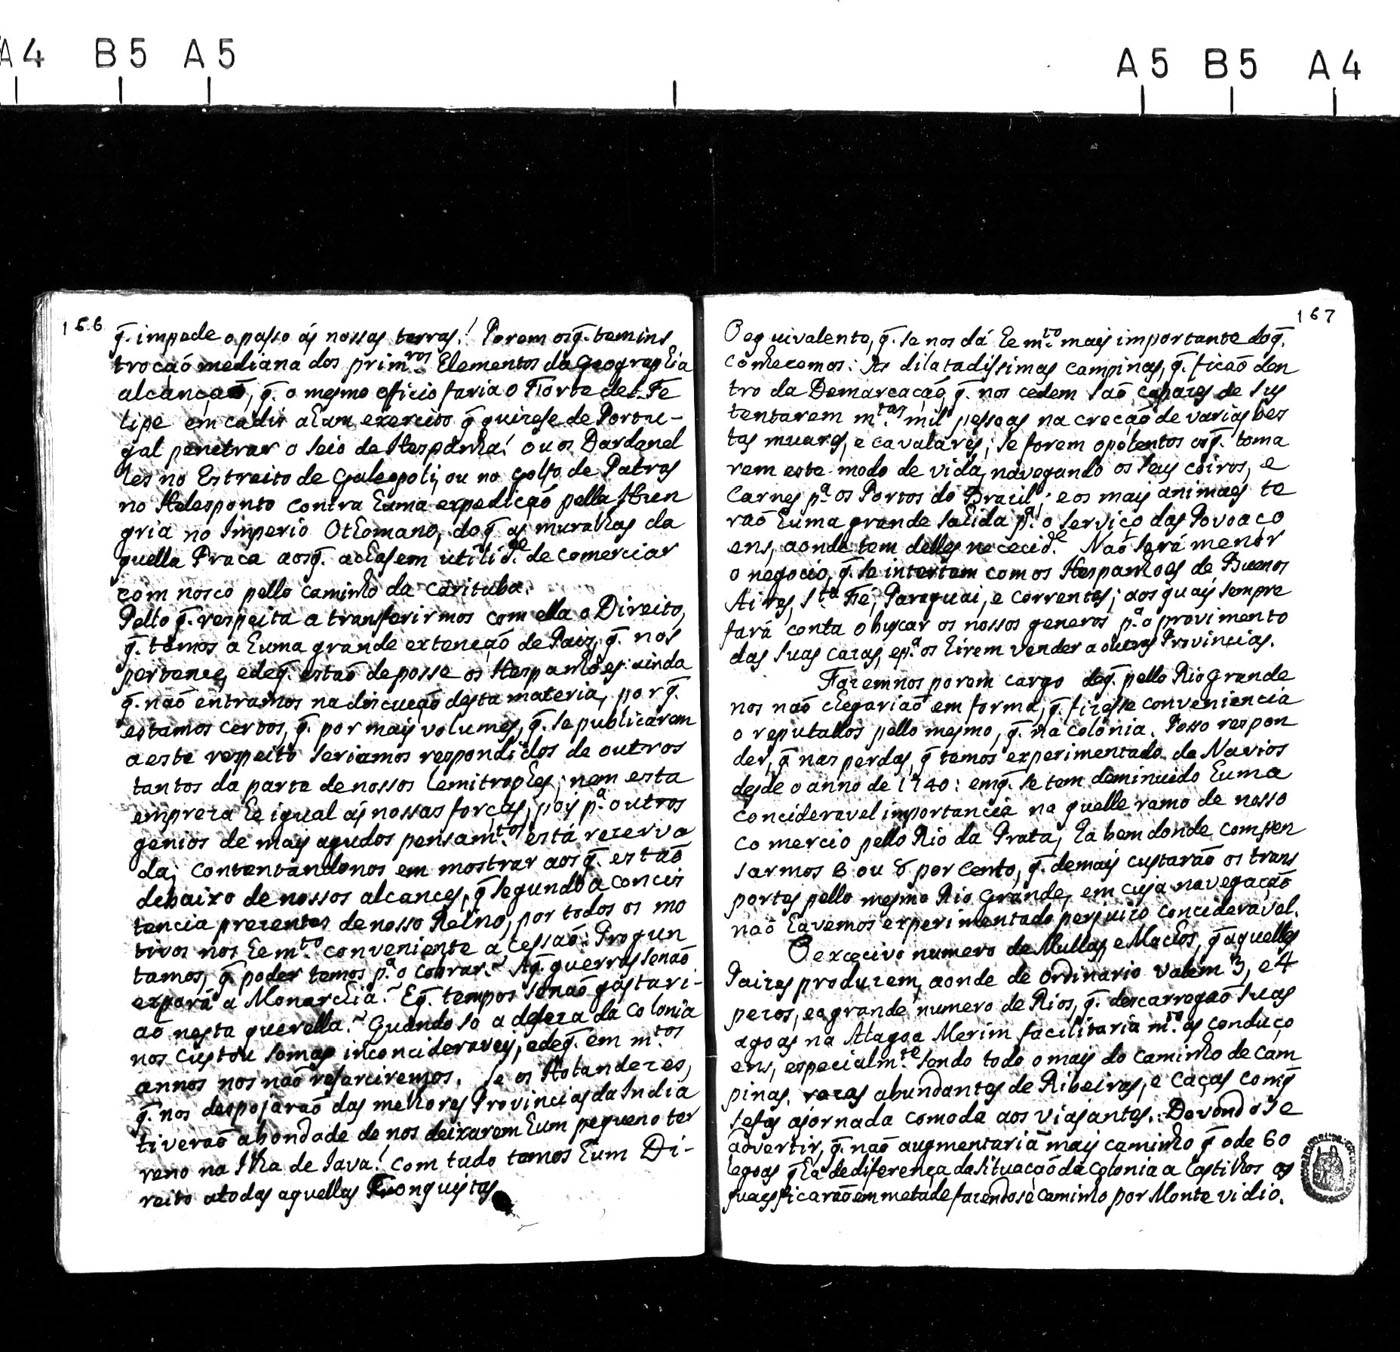 A4 B5 A5
A5 B5 A4
166
q̃. impede o passo ás nossas terras! Porem os q̃. tem ins
trocaõ mediana dos prim.ros Elementos da Geographia
alcançaõ, q̃. o mesmo oficio faria o Forte de S. Fe
lipe em cadis a hum exercito q̃ quizese de Portu-
gal penetrar o Seio de Hespanha! ou os Dardanel
les no Estreito de Galeopoli, ou no golfo de Patras
no Helesponto contra huma expedicaõ pella Hun
gria no Imperio Othomano, do q̃ as muralhas da
quella Praca aos q̃. achasem utilid.e de comerciar
com nosco pello caminho da carituba.
Pello q̃. respeita a transferirmos com ella o Direito,
q̃. temos a huma grande extençaõ de Paiz, q̃. nos
pertence, e de q̃. estaõ de posse os Hespanhoes: ainda
q̃. naõ entramos na discuçaõ desta materia, por q̃.
estamos certos, q̃. por mais volumes, q̃. se publicarem
a este respeito seriamos respondidos de outros
tantos da parte de nossos Lemitrophes; nem esta
empreza he igual ás nossas forcas, pois p.a outros
genios de mais agudos pensam.tos está rezerva
da; contentandonos em mostrar aos q̃. estaõ
debaixo de nossos alcances, q̃ segundo a concis
tencia prezentes de nosso Reino, por todos os mo
tivos nos he m.to conveniente a cessaõ. Progun
tamos, q̃. poder temos p.a o cobrar? A q̃. guerras senaõ
expara a Monarchia? E q̃. tempos senaõ gastari-
aõ nesta querella? Quando só a defeza da Colonia
nos custou somas inconcideraveis, e de q̃. em m.tos
annos nos naõ resarciremos. Se os Holandezes,
q̃. nos despojaraõ das melhores Provincias da India
tiveraõ abondade de nos deixarem hum pequeno ter
reno na Ilha de Java! com tudo temos hum Di-
reito atodas aquellas Conquistas
167
O equivalente, q̃. se nos dá he m.to mais importante do q̃.
conhecemos: As dilatadissimas campinas, q̃. ficaõ den
tro da Demarcaçaõ, q̃. nos cedem saõ capazes de sus
tentarem m.tas mil pessoas na creçaõ de varias bes
tas muares, e cavalares; se forem opolentos os q̃. toma
rem este modo de vida, navegando os seus coiros, e
Carnes p.a os Portos do Brazil: e os mais animaes te
raõ huma grande sahida p.a o serviço das Povoaço
ens, aonde tem delles nececid.e Naõ será menor
o negocio, q̃. se intertem com os Hespanhoes de Buenos
Aires, S.ta Fé, Paraguai, e Correntes; aos quais sempre
fará conta o buscar os nossos generos p.a o provimento
das suas cazas, e p.a os hirem vender a outras Provincias.
Fazemnos porem cargo de q̃. pello Rio grande
nos naõ chegariaõ em forma, q̃. fizesse conveniencia
o reputallos pello mesmo, q̃. na colonia. Posso respon
der, q̃ nas perdas, q̃ temos experimentado de Navios
desde o anno de 1740: em q̃. se tem deminuido huma
concideravel importancia na quelle ramo de nosso
comercio pello Rio da Prata, há bem donde compen
sarmos 6 ou 8 por cento, q̃. demais custaraõ os trans
portes pello mesmo Rio Grande, em cuja navegaçaõ
naõ havemos experimentado perjuizo concideravel.
O excecivo numero de Mullas, e Machos, q̃ aquelles
Paizes produzem, aonde de ordinario valem 3, e 4
pezos, e a grande numero de Rios, q̃. descarregaõ suas
agoas na Alagoa Merim facilitaria m.to as conduço
ens, especialm.te sendo todo o mais do caminho de cam
pinas razas abundantes de Ribeiras, e Caças com q̃
se faz a jornada comoda aos viajantes. Devendose
advertir, q̃. naõ augmentariã mais caminho q̃ o de 60
legoas q̃ há de diferença da situaçaõ da Colonia a Castilhos as
quaes ficaraõ em metade fazendose caminho por Monte vidio.